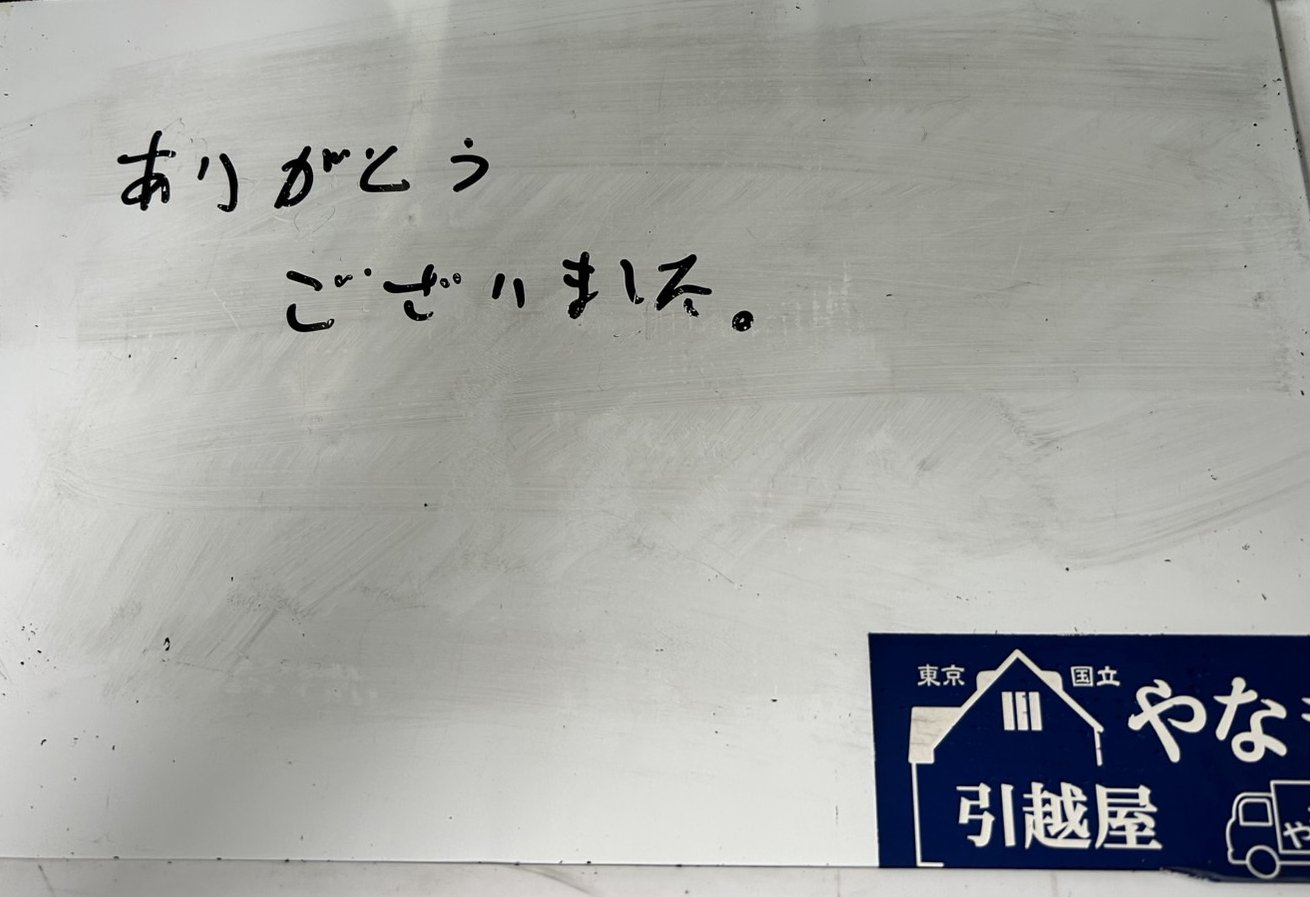 ありがとう
ございました。
東京 国立
やな
引越屋
や